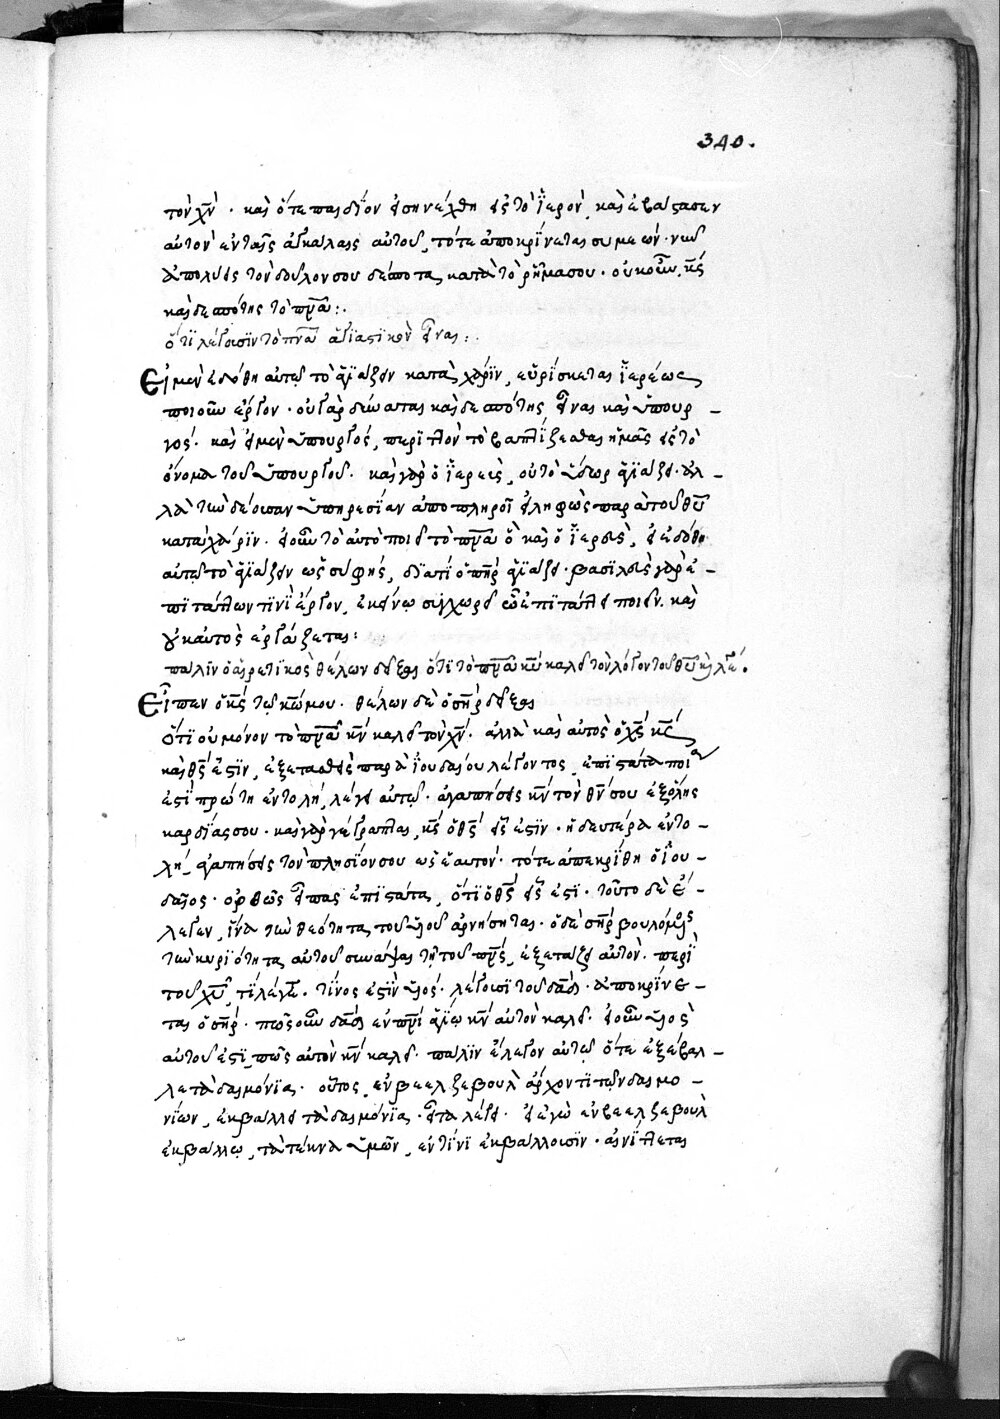 340.
τὸν χν̄. καὶ ὅτε παιδίον εἰσηνέχθη εἰς τὸ ἱερὸν, καὶ ἐβάστασεν
αὐτὸν ἐν ταῖς ἀγκάλαις αὐτοῦ, τότε ἀποκρίνεται συμεών. νῦν
ἀπολύεις τὸν δοῦλον σου δέσποτα, κατὰ τὸ ῥῆμα σου. οὐκοῦν κς̄
καὶ δεσπότης τὸ πνᾱ:.
ὅτι λέγουσιν τὸ πνᾱ ἁγιαστικὸν εἶναι:.
Εἰ μὲν ἐδόθη αὐτῷ τὸ ἁγιάζειν κατὰ χάριν, εὑρίσκεται ἱερέως
ποιοῦν ἔργον. οὐ γὰρ δύναται καὶ δεσπότης εἶναι καὶ ὑπουρ-
γός. καὶ εἰ μὲν ὑπουργός, περιττὸν τὸ βαπτίζεσθαι ἡμᾶς εἰς τὸ
ὄνομα τοῦ ὑπουργοῦ. καὶ γὰρ ὁ ἱερεὺς, οὐ τὸ ὕδωρ ἁγιάζει. ἀλ-
λὰ τὴν δέουσαν ὑπηρεσίαν ἀποπληροῖ εἰληφὼς παρὰ τοῦ θῡ
κατὰ χάριν. εἰ οὖν τὸ αὐτὸ ποιεῖ τὸ πνᾱ ὃ καὶ ὁ ἱερεὺς, εἰ ἐδόθη
αὐτῷ τὸ ἁγιάζειν ὡς σὺ φῂς, διατί ὁ πηρ̄ ἁγιάζει. βασιλεὺς γὰρ ἐ-
πιτάττων τινὶ ἔργον, ἐκείνῳ συγχωρεῖ ὧ ἐπιτάττει ποιεῖν. καὶ
οὐκ αὐτὸς ἐργάζεται:
πάλιν ὁ αἱρετικὸς θέλων δεῖξαι ὅτι τὸ πνᾱ κν̄ καλεῖ τὸν λόγον τοῦ θῡ
Εἶπεν ὁ κς̄ τῷ κω̄ μου. θέλων δὲ ὁ σηρ̄ δεῖξαι
ὅτι οὐ μόνον τὸ πνᾱ κν̄ καλεῖ τὸν χν̄. ἀλλὰ καὶ αὐτὸς ὁ χς̄ κς̄
καὶ θς̄ ἐστιν, ἐξετασθεὶς παρὰ ἰουδαίου λέγοντος, ἐπιστάτα ποία
ἐστὶ πρώτη ἐντολή, λέγει αὐτῷ. ἀγαπήσεις κν̄ τὸν θν̄ σου ἐξ ὅλης
καρδίας σου. καὶ γὰρ γέγραπται, κς̄ ὁ θς̄ εἷς ἐστιν. ἡ δευτέρα ἐντο-
λή, ἀγαπήσεις τὸν πλησίον σου ὡς ἑαυτόν. τότε ἀπεκρίθη ὁ ἰου-
δαῖος. ὀρθῶς εἶπας ἐπιστάτα, ὅτι ὁ θς̄ εἷς ἐστι. τοῦτο δὲ ἔ-
λεγεν, ἵνα τὴν θεότητα τοῦ υἱοῦ ἀρνήσηται. ὁ δὲ σηρ̄ βουλόμενος
τὴν κυριότητα αὐτοῦ συνάψαι τῇ τοῦ πρς̄, ἐξετάζει αὐτὸν. περὶ
τοῦ χῡ τί λέγετε. τίνος ἐστὶν υἱός. λέγουσι τοῦ δαδ̄. ἀποκρίνε-
ται ὁ σηρ̄. πῶς οὖν δαδ̄ ἐν πνῑ ἁγίῳ κν̄ αὐτὸν καλεῖ. εἰ οὖν υἱὸς
αὐτοῦ ἐστι, πῶς αὐτὸν κν̄ καλεῖ. πάλιν ἔλεγον αὐτῷ ὅτε ἐξέβαλ-
λε τὰ δαιμόνια. οὗτος, ἐν βεελζεβοὺλ ἄρχοντι τῶν δαιμο-
νίων, ἐκβάλλει τὰ δαιμόνια. εἶτα λέγει. εἰ ἐγὼ ἐν βεελζεβοὺλ
ἐκβάλλω, τὰ τέκνα ὑμῶν, ἐν τίνι ἐκβάλλουσιν. αἰνίττεται